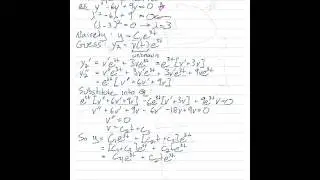 y''-6y'+9y=0
λ²-6λ+9=0
(λ-3)²=0 → λ=3
Naively y = C₁e^{3t}
Guess y₂ = v(t)e^{3t}
unknown
y₂' = v'e^{3t} + 3ve^{3t} = e^{3t}[v'+3v]
y₂'' = v''e^{3t} + 3v'e^{3t} + 3v'e^{3t} + 9ve^{3t}
= e^{3t}[v''+6v'+9v]
Substitute into
e^{3t}[v''+6v'+9v] -6e^{3t}[v'+3v] + 9e^{3t}v=0
v''+6v'+9v-6v'-18v+9v=0
v''=0
v=C₂t+C₃
So y = C₁e^{3t} + [C₂t+C₃]e^{3t}
= [C₁+C₃]e^{3t} + C₂te^{3t}
= C₄e^{3t} + C₂te^{3t}